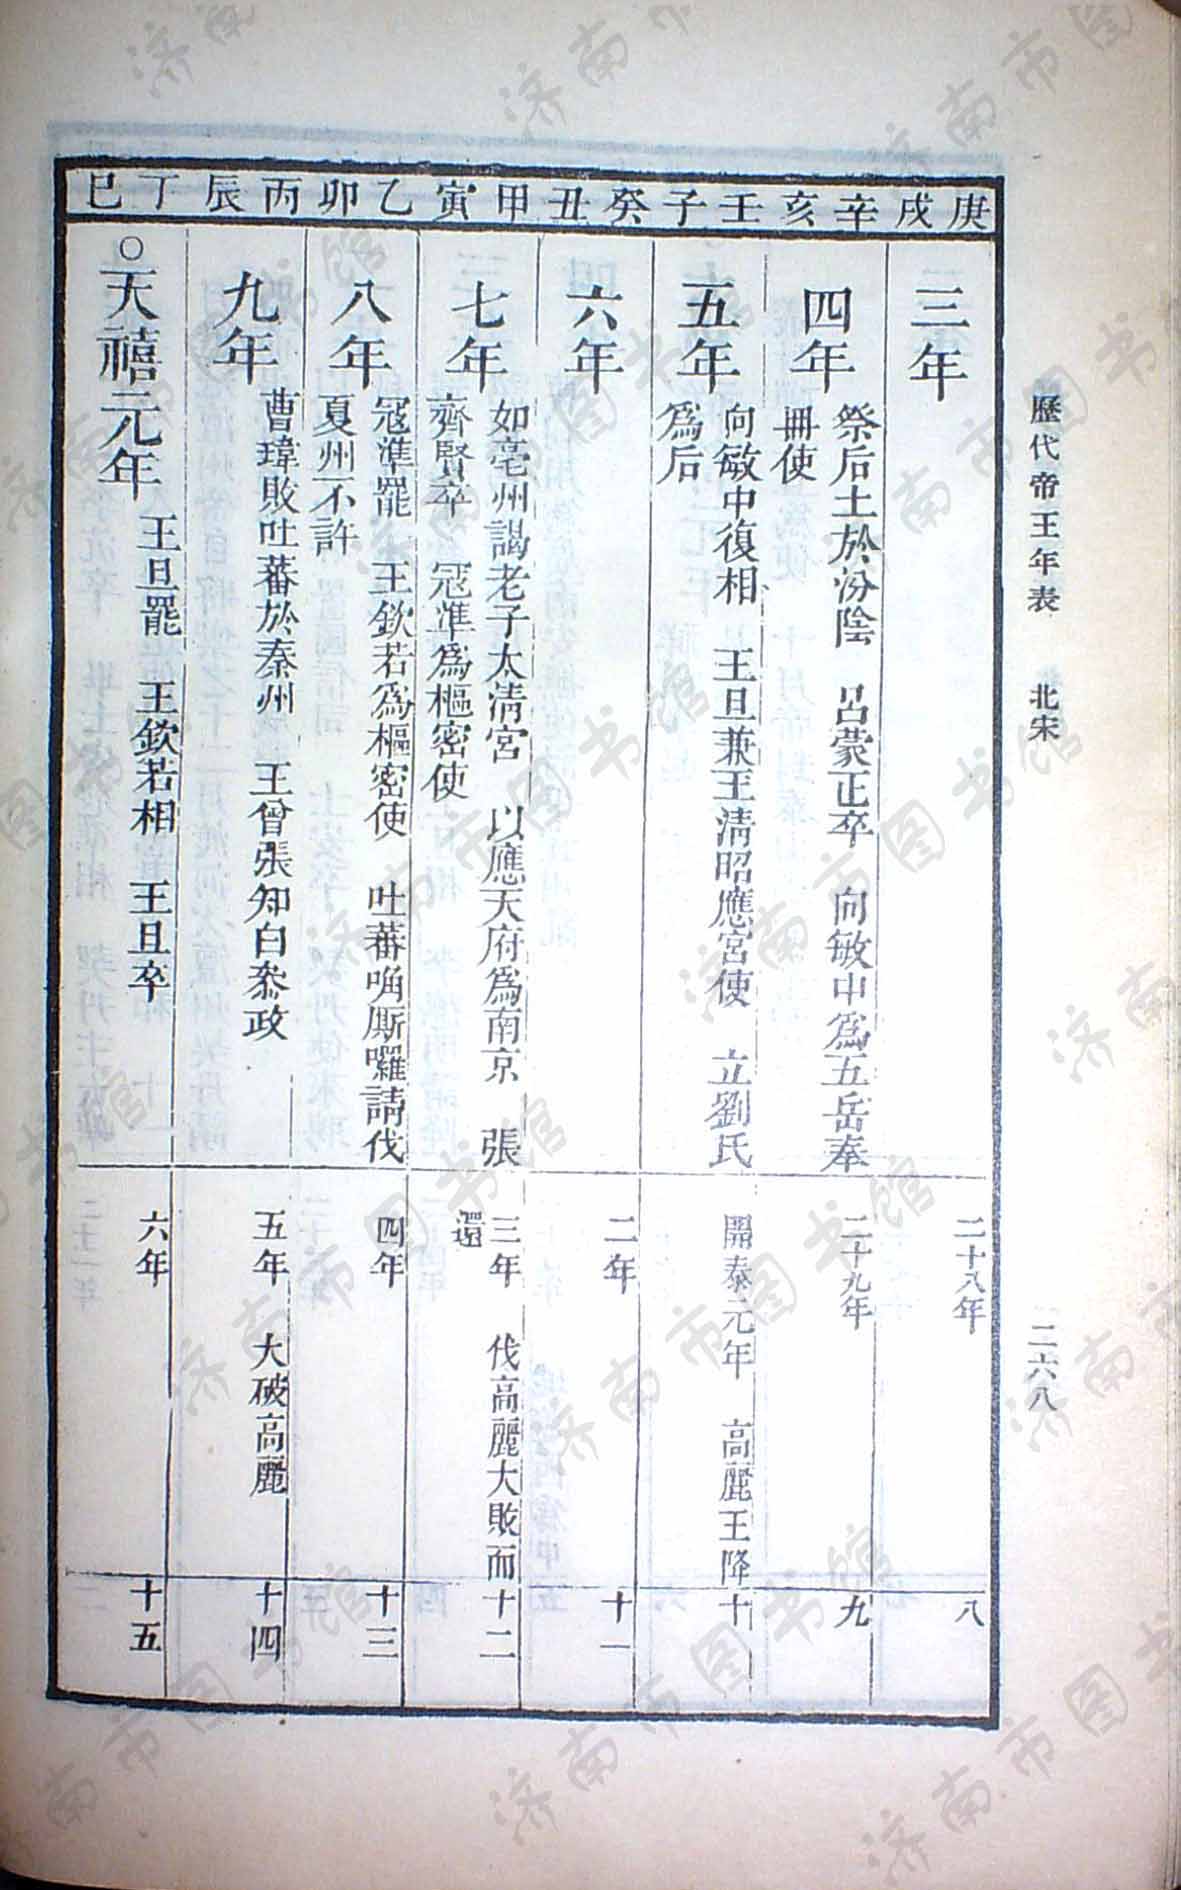 歷代帝王年表　北宋　二六八
庚戌
三年
二十八年
八
辛亥
四年
祭后土於汾陰　呂蒙正卒　向敏中爲五岳奉
冊使
二十九年
九
壬子
五年
向敏中復相　王旦兼玉淸昭應宮使　立劉氏
爲后
開泰元年　高麗王降
十
癸丑
六年
二年
十一
甲寅
七年
如亳州謁老子太淸宮　以應天府爲南京　張
齊賢卒　冦準爲樞密使
三年　伐高麗大敗而
還
十二
乙卯
八年
冦準罷　王欽若爲樞密使　吐蕃唃厮囉請伐
夏州不許
四年
十三
丙辰
九年
曹瑋敗吐蕃於秦州　王曾張知白叅政
五年　大破高麗
十四
丁巳
○天禧元年
王旦罷　王欽若相　王旦卒
六年
十五
济南市图书馆